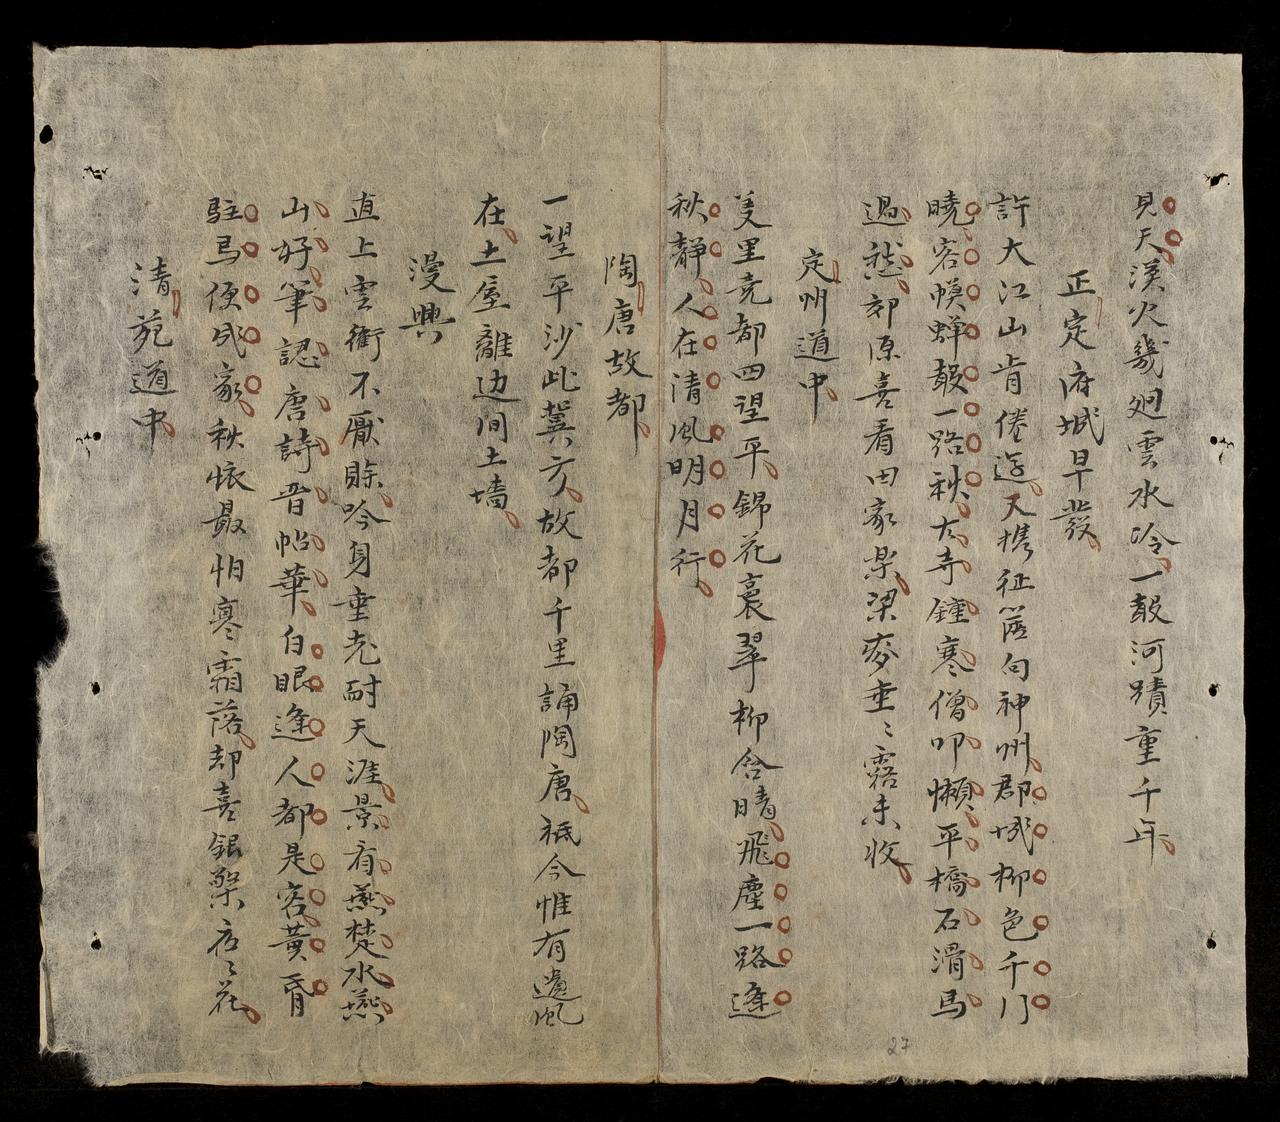 見天漢火幾廻雲水冷一聲河蹟重千年
正定府城早發
許大江山肯倦遊天携征蓋句神州郡城柳色千门
曉客幙蟬聲一路秋古寺鐘寒僧叩懶平橋石滑馬
過愁郊原喜看田家樂梁麥垂〻露未收
定州道中
美里堯都四望平錦花裏翠柳含晴飛塵一路逢
秋靜人在清風明月行
陶唐故都
一望平沙此冀方故都千里誦陶唐祗今惟有遺風
在土屋離边间土墻
漫興
直上雲衢不厭賒吟身垂老耐天涯景有燕楚水燕
山好筆認唐詩晋帖華白眼逢人都是客黃昏
駐馬便成家秋懷最怕寒霜落却喜銀檠夜〻花
清苑道中
27